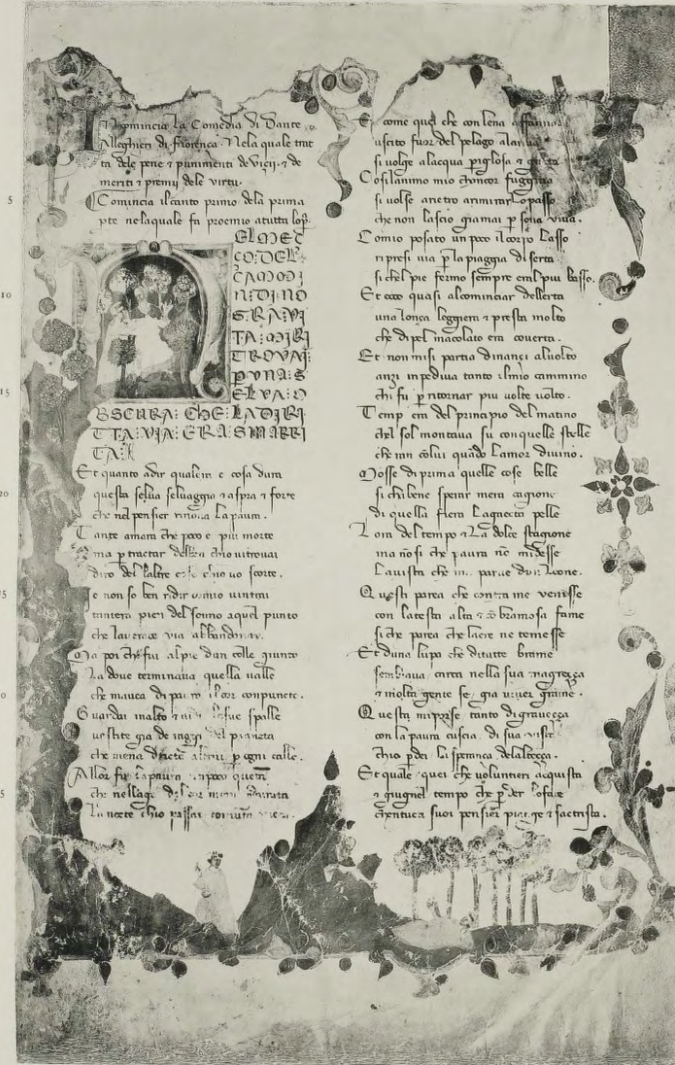 Incomincia la Comedia di Dante
Alleghieri di fiorença. Nela quale trat
ta dele pene τ punimenti de vicij. τ de
meriti τ premij dele virtu.
Comincia il canto primo dela prima
pte nelaquale fa proemio atutta lopa
NELMEÇ
ÇO: DEL:
CAMMI
N: DI: NO
S: RA: VI
TA: MI RI
TROVAI:
P: UNA: S
ELVA: O
BSCURA: CHE: LA DI RI
TTA: VIA: ERA SMARRI
TA:
Et quanto adir qualera e cosa dura
questa selva selvaggia τ aspra τ forte
che nel pensier rinova la paura.
Tante amara che poco e piu morte
ma p tractar del ben chio vitrovai
diro del laltre cose chio vo scorte.
Je non so ben ridir comio vintrai
tantera pien del sonno aquel punto
che la verace via abbandonai.
Ma poi che fui al pie dun colle giunto
La dove terminava quella valle
che mauea di paura il cor compunto.
Guardai inalto τ vidi le sue spalle
vestite gia de raggi del pianeta
che mena dricto altrui p ogni calle.
Allor fu la paura un poco queta
che nellago del cor mera durata
la nocte chio passai com tanta pieta.
5
10
15
20
E come quei che con lena affannata
uscito fuor del pelago alariva
si volge alacqua piglosa τ guata
Cosi lanimo mio chancor fuggiva
si volse aretro arimirar lo passo
che non lascio giamai p sona viva.
Comio posato un poco il corpo lasso
ripresi via p la piaggia diserta
si chel pie fermo sempre eral piu basso.
Et ecco quasi alcominciar dellerta
una lonça leggiera τ presta molto
che di pel macolato era coverta.
Et non misi partia dinançi alvolto
anzi inpediva tanto ilmio cammino
chi fu p ritornar piu volte volto.
Temp era del principio del matino
chel sol montava su con quelle stelle
cheran colui quado lamor divino.
Mosse di prima quelle cose belle
si chi bene sperar mera cagione
di quella fiera lagaecta pelle
Lora del tempo τ la dolce stagione
ma no si che paura no midesse
la vista che parue dun leone.
Questi parea che contra me venesse
con latesta alta τ co bramosa fame
si che parea che laere ne temesse
Et duna lupa che ditutte brame
sembiava carca nella sua magreçça
τ molta gente fe gia viver grame.
Questa miporse tanto digraveçça
con la paura cuscia di sua vista
chio pdei la sperança delalteçça.
Et quale quei che voluntieri acquista
τ giugnel tempo che p der lo face
chentuct i suoi pensier piange τ sactrista.